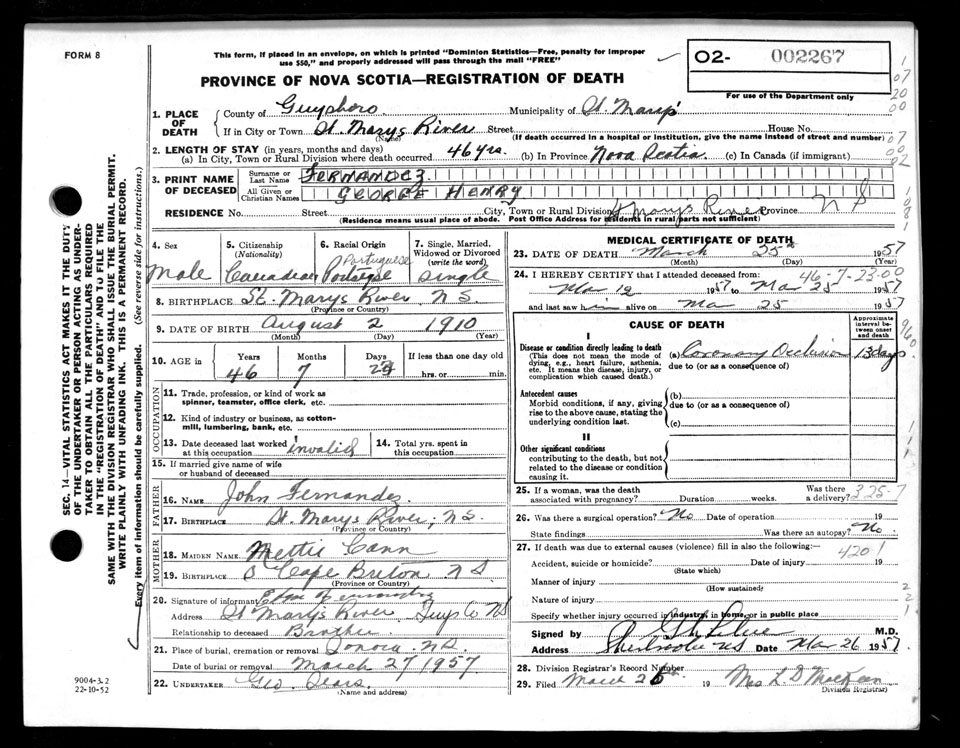 FORM 8
This form, if placed in an envelope, on which is printed "Dominion Statistics—Free, penalty for improper
use $50," and properly addressed will pass through the mail "FREE"
O2- 002267
For use of the Department only
PROVINCE OF NOVA SCOTIA—REGISTRATION OF DEATH
1. PLACE OF DEATH
County of Guysboro Municipality of St. Mary's
If in City or Town St. Marys River Street House No.
(Name) (If death occurred in a hospital or institution, give the name instead of street and number)
2. LENGTH OF STAY (in years, months and days)
(a) In City, Town or Rural Division where death occurred 46 yrs. (b) In Province Nova Scotia (c) In Canada (if immigrant)
3. PRINT NAME OF DECEASED
Surname or Last Name FERNANDEZ
All Given or Christian Names GEORGE HENRY
RESIDENCE No. Street City, Town or Rural Division St Marys River Province N S
(Residence means usual place of abode. Post Office Address for residents in rural parts not sufficient)
4. Sex
Male
5. Citizenship (Nationality)
Canadian
6. Racial Origin
Portuguese
Portugese
7. Single, Married, Widowed or Divorced (write the word)
Single
8. BIRTHPLACE St. Marys River N S.
(Province or Country)
9. DATE OF BIRTH August 2 1910
(Month) (Day) (Year)
10. AGE in Years Months Days If less than one day old
46 7 23 hrs. or min.
OCCUPATION
11. Trade, profession, or kind of work as spinner, teamster, office clerk, etc.
12. Kind of industry or business, as cotton-mill, lumbering, bank, etc.
13. Date deceased last worked at this occupation invalid
14. Total yrs. spent in this occupation
15. If married give name of wife or husband of deceased
FATHER
16. NAME John Fernandez
17. BIRTHPLACE St. Marys River, N S.
(Province or Country)
MOTHER
18. MAIDEN NAME Mettie Cann
19. BIRTHPLACE Cape Breton N S
(Province or Country)
20. Signature of informant
Address St Marys River Guys Co NS
Relationship to deceased Brother
21. Place of burial, cremation or removal Sonora, N S
Date of burial or removal March 27 1957
22. UNDERTAKER Geo.
(Name and address)
MEDICAL CERTIFICATE OF DEATH
23. DATE OF DEATH March 25th 1957
(Month) (Day) (Year)
46-7-23-00
24. I HEREBY CERTIFY that I attended deceased from:
Mar 12 1957 to Mar 25 1957
and last saw him alive on Mar 25 1957
CAUSE OF DEATH
Approximate interval between onset and death
I
Disease or condition directly leading to death
(This does not mean the mode of dying, e.g., heart failure, asthenia, etc. It means the disease, injury, or complication which caused death.)
(a) Coronary Occlusion 13 days
due to (or as a consequence of)
Antecedent causes
Morbid conditions, if any, giving rise to the above cause, stating the underlying condition last.
(b)
due to (or as a consequence of)
(c)
II
Other significant conditions
contributing to the death, but not related to the disease or condition causing it.
25. If a woman, was the death associated with pregnancy? Duration weeks. Was there a delivery?
325-7
26. Was there a surgical operation? No Date of operation 19
State findings Was there an autopsy? No.
27. If death was due to external causes (violence) fill in also the following:—
4201
Accident, suicide or homicide? Date of injury 19
(State which)
Manner of injury
(How sustained)
Nature of injury
Specify whether injury occurred in industry, in home, or in public place
Signed by M.D.
Address Sherbrooke NS Date Mar 26 1957
28. Division Registrar's Record Number
29. Filed March 26th 19 Mrs L D MacKeen
Division Registrar
SEC. 14—VITAL STATISTICS ACT MAKES IT THE DUTY
OF THE UNDERTAKER OR PERSON ACTING AS UNDER-
TAKER TO OBTAIN ALL THE PARTICULARS REQUIRED
IN THE "REGISTRATION OF DEATH" AND TO FILE THE
SAME WITH THE DIVISION REGISTRAR WHO SHALL ISSUE THE BURIAL PERMIT.
WRITE PLAINLY WITH UNFADING INK. THIS IS A PERMANENT RECORD.
Every item of information should be carefully supplied. (See reverse side for instructions.)
9004-3.2
22-10-52